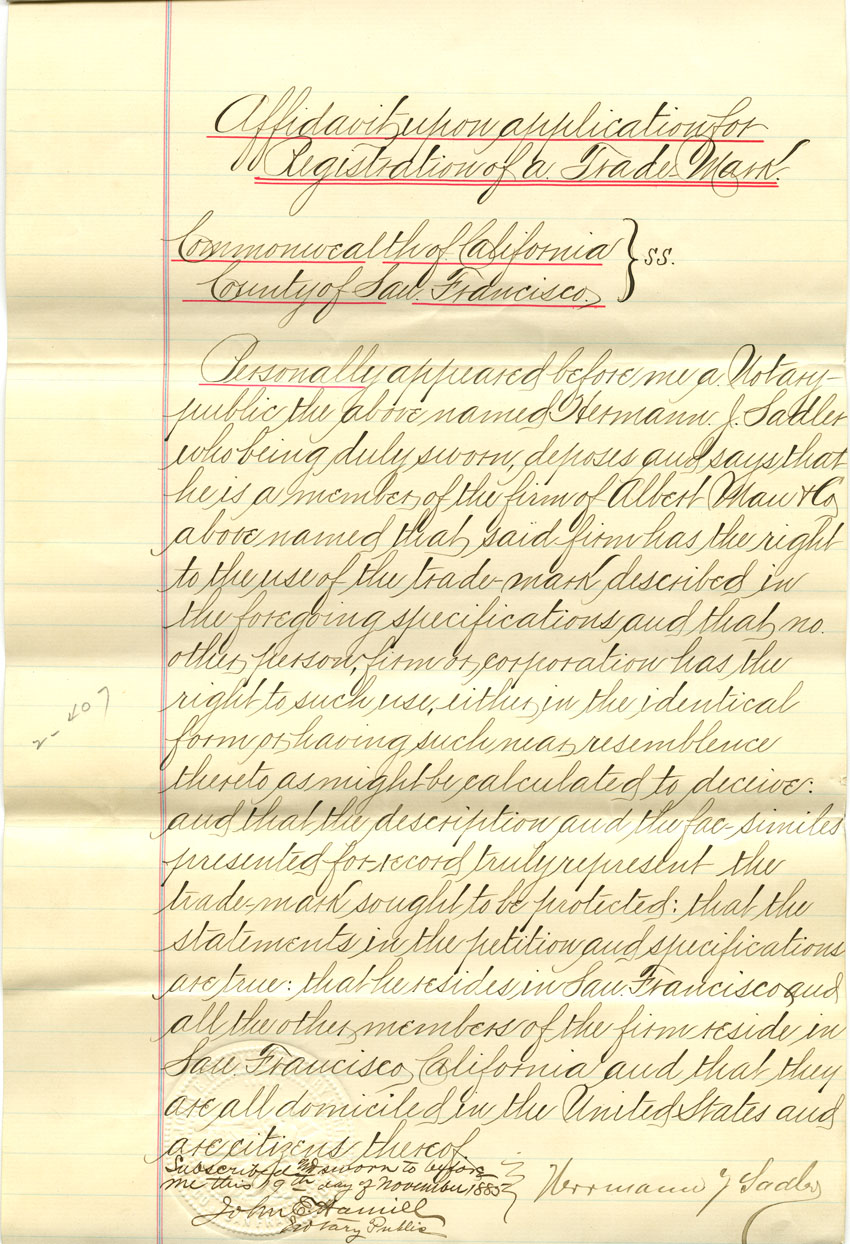 Affidavit upon application for
Registration of a Trade-Mark.
Commonwealth of California } ss.
County of San Francisco.
Personally appeared before me a Notary-
public the above named Hermann. J. Sadler
who being duly sworn, deposes and says that
he is a member of the firm of Albert Mau & Co
above named that said firm has the right
to the use of the trade-mark described in
the foregoing specifications and that no
other person, firm or corporation has the
right to such use, either in the identical
form or having such near resemblence
thereto as might be calculated to deceive:
and that the description and the fac-similes
presented for record truly represent the
trade-mark sought to be protected: that the
statements in the petition and specifications
are true: that he resides in San Francisco and
all the other members of the firm reside in
San Francisco, California and that they
are all domiciled in the United States and
are citizens thereof.
Subscribed and sworn to before
me this 19th day of November 1885
Herrmann J Sadler
John E Hamill
Notary Public
2-407